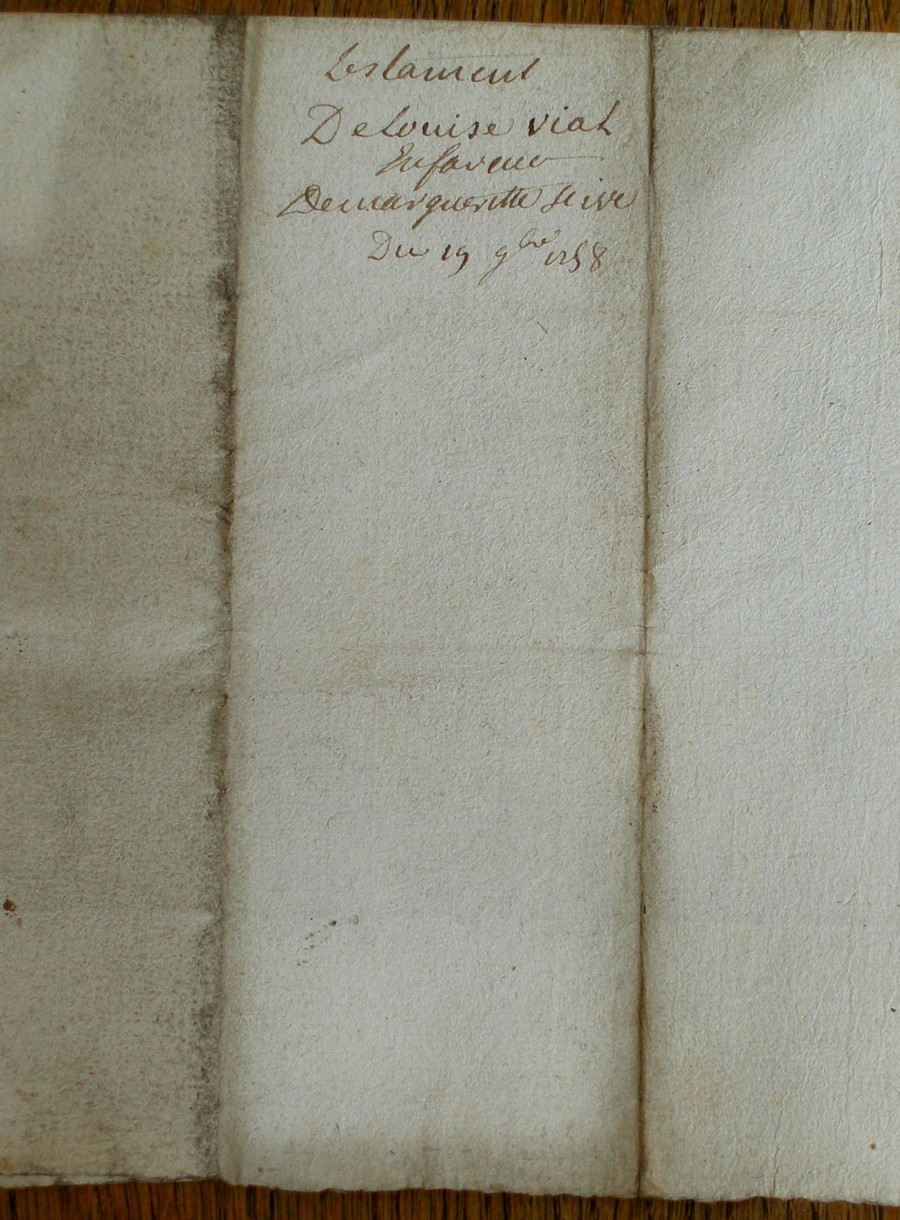 testament
De louise vial
En faveur
De margueritte seive
Du 19 9bre 1758